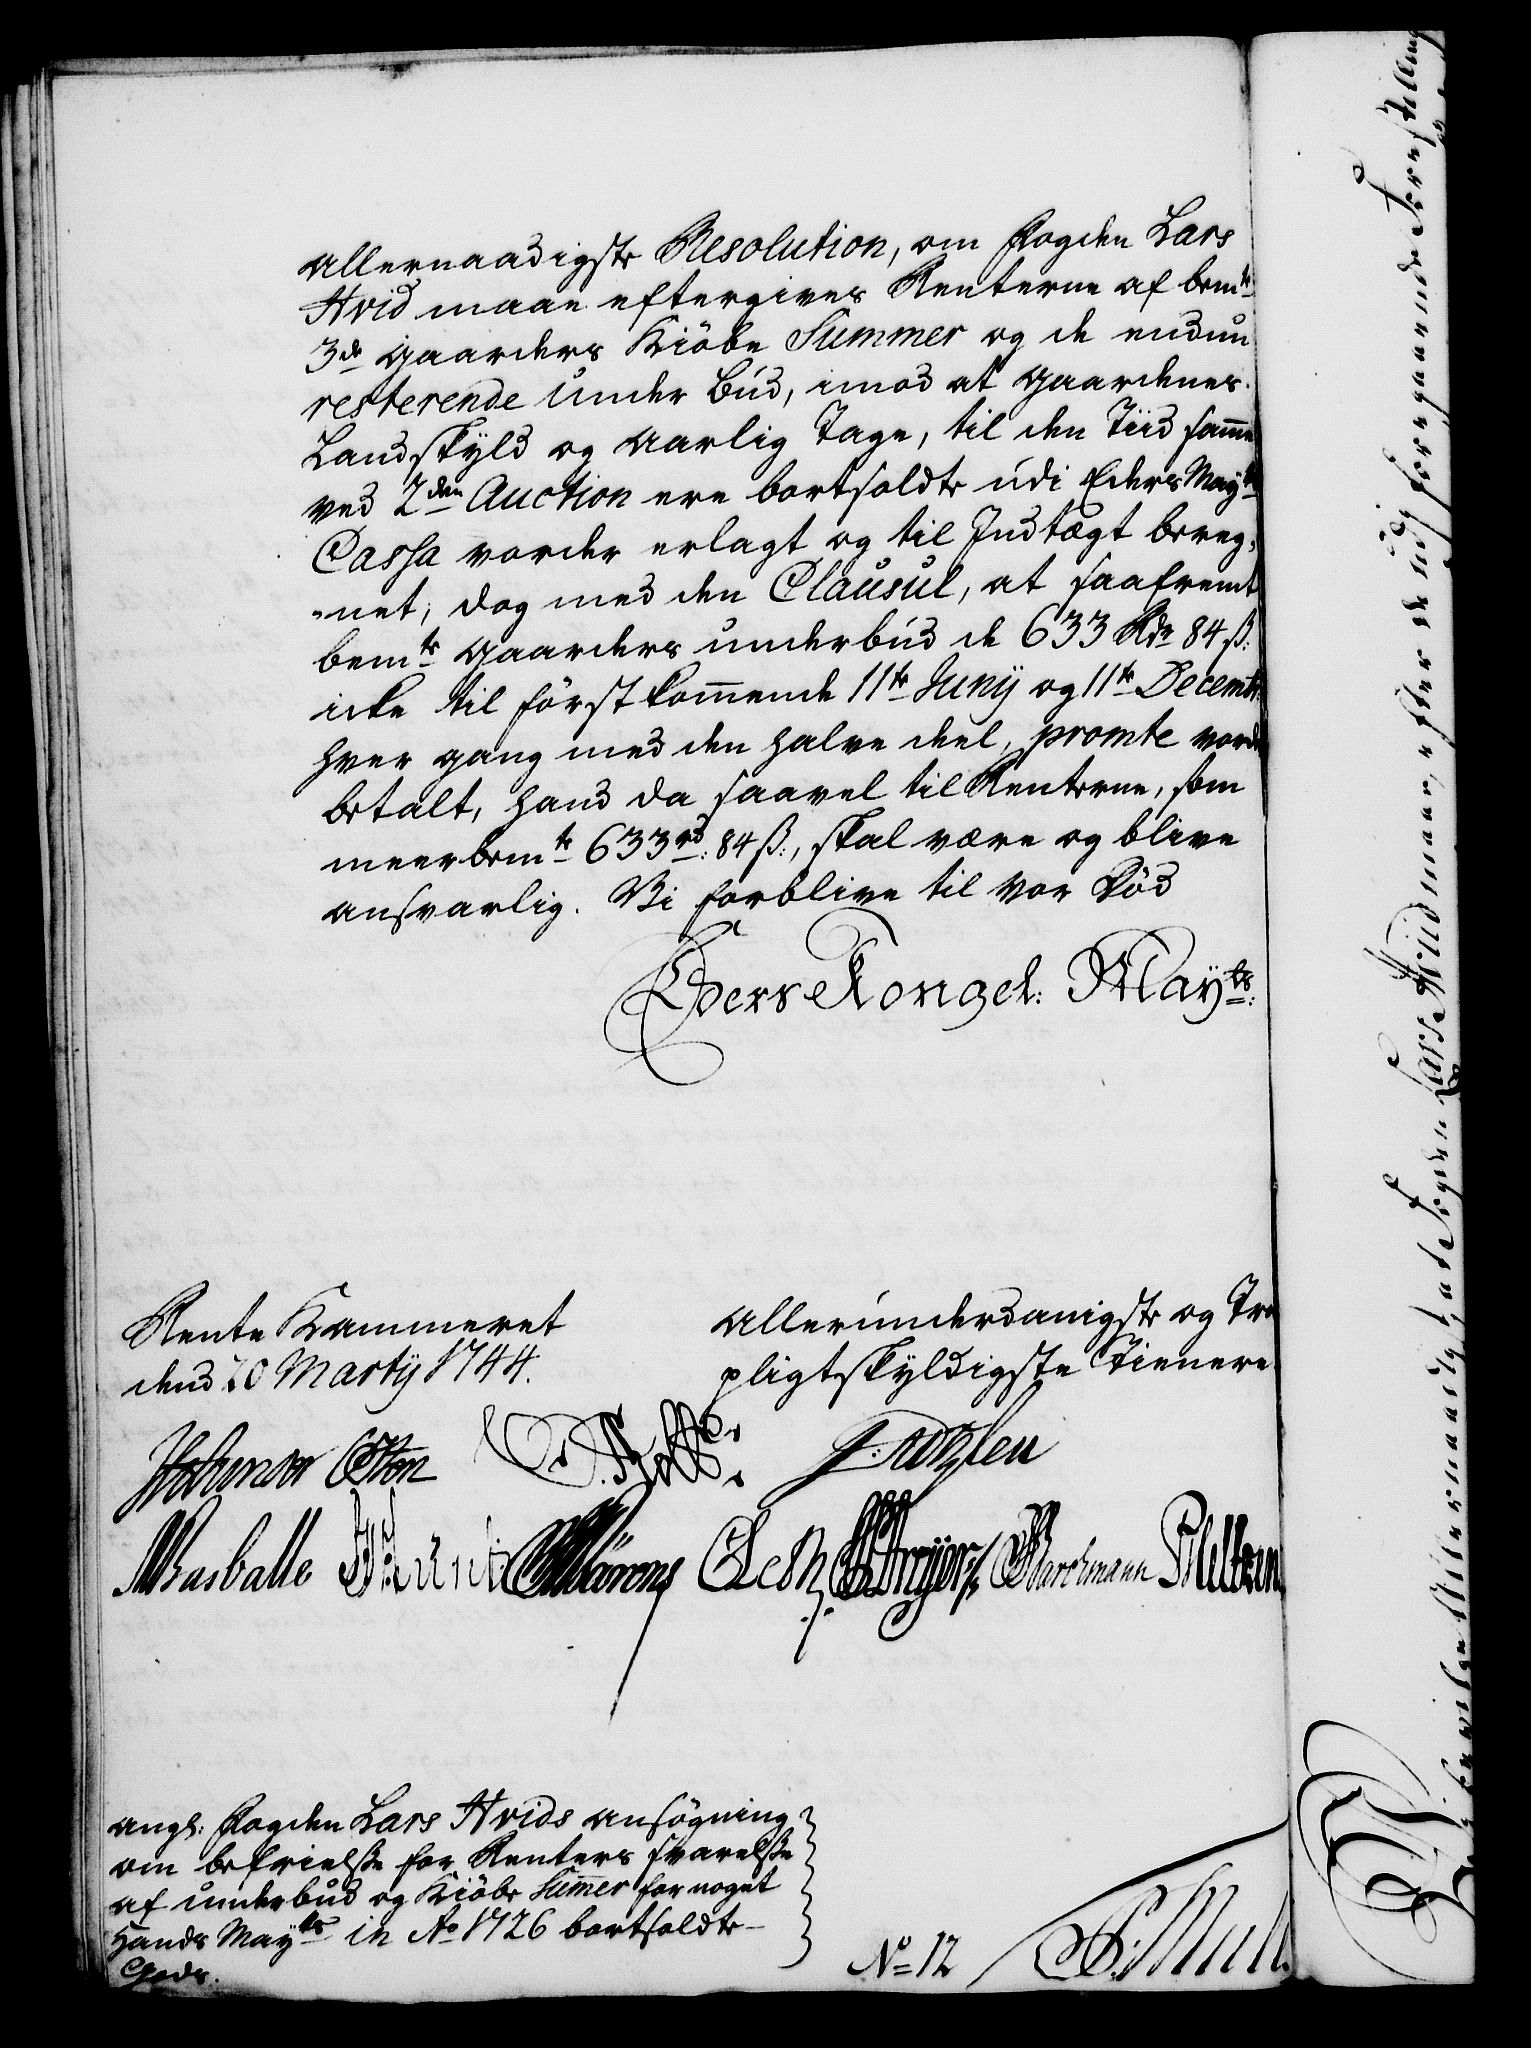 allernaadigste Resolution, om Fogden Lars
Hvid maae eftergives Renterne af bemte
3de gaarders Kiöbe Summer og de endnu
resterende Under Bud, imod at gaardenes
Landskyld og aarlig Tage, til den Tiid samme
ved 2den Auction ere bortsoldte udi Eders Mayts
Cassa vorder erlagt og til Indtægt bereg-
-net; dog med den Clausul, at saafremt
bemte gaarders underbud de 633 Rdr 84 ß:
icke til förstkommende 11te Junij og 11te Decembr
hver gang med den halve deel, promte vorde
betalt, hand da saavel til Renterne, som
meerbemte 633 rd: 84 ß:, skal være og blive
ansvarlig. Vi forblive til vor Död
Eders Kongel: Mayts:
Rente Kammeret
dend 20 Martij 1744.
allerunderdanigste og Tro
pligtskyldigste Tienere
Holmsted
Basballe
angl: Fogden Lars Hvids ansögning
om befrielse for Renters svarelse
af underbud og Kiöbe Summer for noget
Hands Mayts in Ao 1726 bortsoldte
Gods.
No 12
Bevilge Allernaadigst, at Fogden Lars Hvid maae, efter de udj foregaaende Forestilling